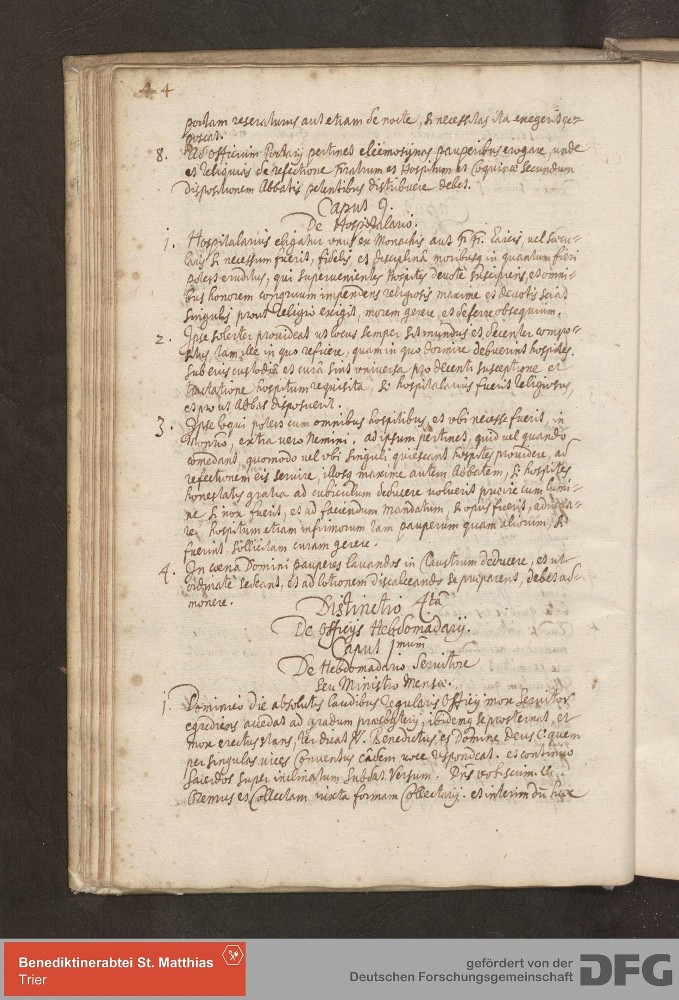 44
portam reseraturus aut etiam de nocte, si necessitas ita exegerit et
poscat.
8. Ad officium Portarij pertinet eleemosynas pauperibus erogare, unde
et reliquias de refectione fratrum et Hospitum et Coquinae secundum
dispositionem Abbatis petentibus distribuere debet.
Caput 9.
De Hospitalario.
1. Hospitalarius eligatur unus ex Monachis aut laicis, vel saecu-
laris si necessum fuerit, fidelis, et disciplina moribusq in quantum fieri
potest eruditus, qui supervenientes Hospites devote suscipiens, et omni-
bus honorem congruum impendens religiosis maxime et devotis sciat
singulis prout religio exigit, morem gerere, et deferre obsequium.
2. Ipse solerter provideat ut locus semper sit mundus et decenter compo-
situs, tam ille in quo reficere, quam in quo dormire debuerint hospites.
Sub eius custodia et cura sint universa pro decenti susceptione et
tractatione hospitum requisita, si hospitalarius fuerit Religiosus,
et prout Abbas disposuerit.
3. Ipse loqui potest cum omnibus hospitibus, et ubi necesse fuerit, in
extra vero nemini. ad ipsum pertinet, quid vel quando
comedant, quomodo vel ubi singuli quiescant hospites providere, ad
refectionem eis servire, illosq maxime autem Abbatem, si hospites
honestatis gratia ad cubiculum deducere voluerit praeire cum lumi-
ne si nox fuerit, et ad faciendum mandatum, si opus fuerit, adiuva-
re, hospitum etiam infirmorum tam pauperum quam aliorum, si
fuerint, sollicitam curam gerere.
4. In coena Domini pauperes lavandos in Claustrum deducere, et ut
ordinate sedeant, et ad lotionem discalceando se praeparent, debet ad-
monere.
Distinctio 4ta
De Officijs Hebdomadarij.
Caput 1mum
De Hebdomadario Servitore
seu Ministro Mensae.
1. Dominico die absolutis laudibus regularis officij mox Servitor
egrediens accedat ad gradum praesbyterij, ibidemq se prosternat, et
mox erectus stans, ter dicat V. Benedictus es Domine Deus &c. quem
per singulas vices Conventus eadem voce respondeat. et continuo
Sacerdos super inclinatum subdat Versum. Dns vobiscum. &c.
Oremus et Collectam iuxta formam Collectarij. et interim dum haec
Benediktinerabtei St. Matthias
Trier
gefördert von der
Deutschen Forschungsgemeinschaft
DFG